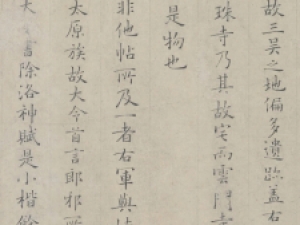 故三吴之地偏多遺跡蓋右
珠寺乃其故宅而雲門寺
是物也
非他帖所及一者右軍與
太原族故大令首言郎邪
大令書除洛神賦是小楷餘